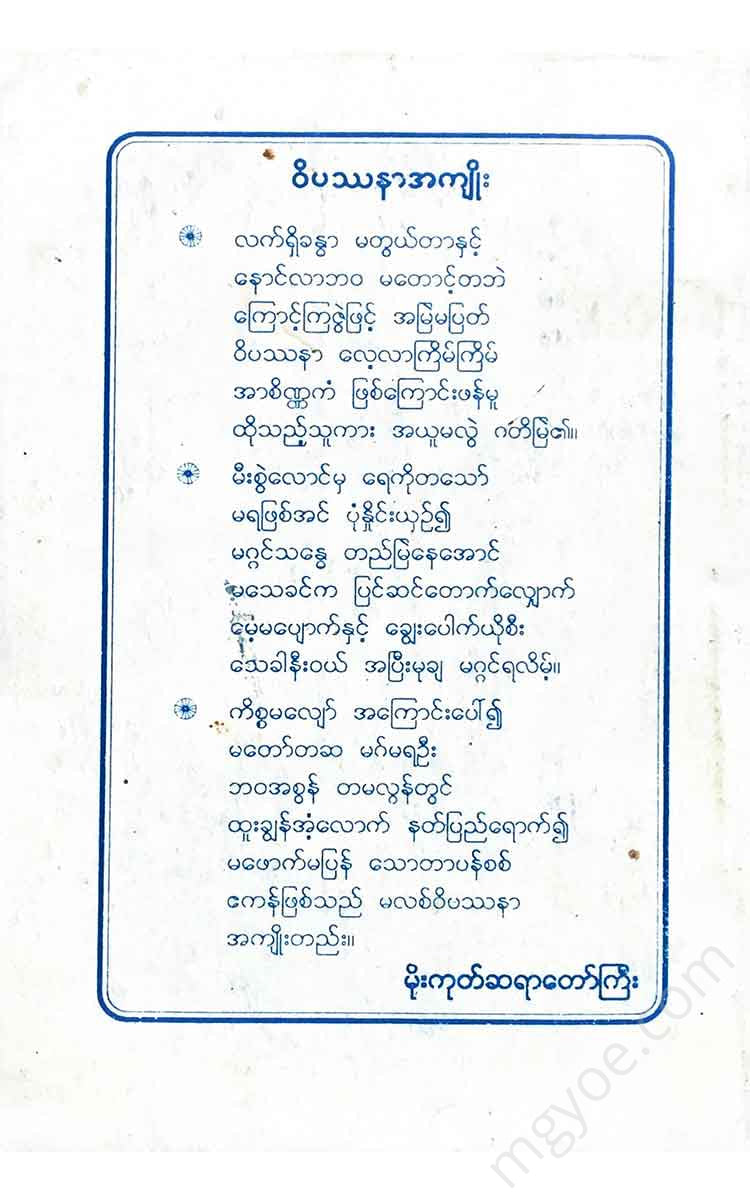 ဝိပဿနာအကျိုး
လက်ရှိခန္ဓာ မတွယ်တာနှင့်
နောင်လာဘဝ မတောင့်တဘဲ
ကြောင့်ကြဇွဲဖြင့် အမြဲမပြတ်
ဝိပဿနာ လေ့လာကြိမ်ကြိမ်
အာစိဏ္ဏကံ ဖြစ်ကြောင်းဖန်မူ
ထိုသည့်သူကား အယူမလွဲ ဂတိမြဲ၏။
မီးစွဲလောင်မှ ရေကိုတသော်
မရဖြစ်အင် ပုံနှိုင်းယှဉ်၍
မဂ္ဂင်သန္ဓေ တည်မြဲနေအောင်
မသေခင်က ပြင်ဆင်တောက်လျှောက်
မေ့မပျောက်နှင့် ချွေးပေါက်ယိုစီး
သေခါနီးဝယ် အပြီးမုချ မဂ္ဂင်ရလိမ့်။
ကိစ္စမလျော် အကြောင်းပေါ်၍
မတော်တဆ မဂ်မရဦး
ဘဝအစွန် တမလွန်တွင်
ထူးချွန်အံ့လောက် နတ်ပြည်ရောက်၍
မဖောက်မပြန် သောတာပန်စစ်
ဧကန်ဖြစ်သည် မလစ်ဝိပဿနာ
အကျိုးတည်း။
မိုးကုတ်ဆရာတော်ကြီး
mgyoe.com